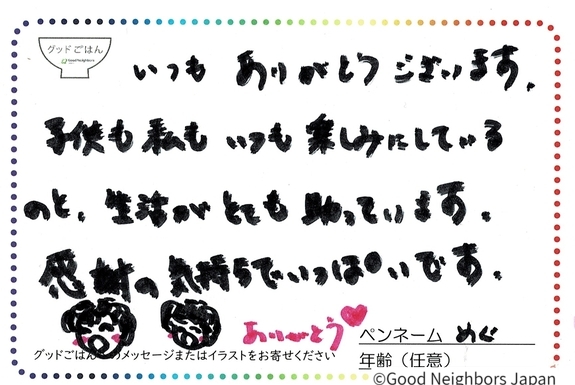 グッドごはん
Good Neighbors
いつも ありがとう ございます。
子供も 私も いつも 楽しみにしている
のと、生活が とても 助っています。
感謝の 気持ちでいっぱいです。
ありがとう
グッドごはんへのメッセージまたはイラストをお寄せください
ペンネーム めぐ
年齢（任意）
©Good Neighbors Japan